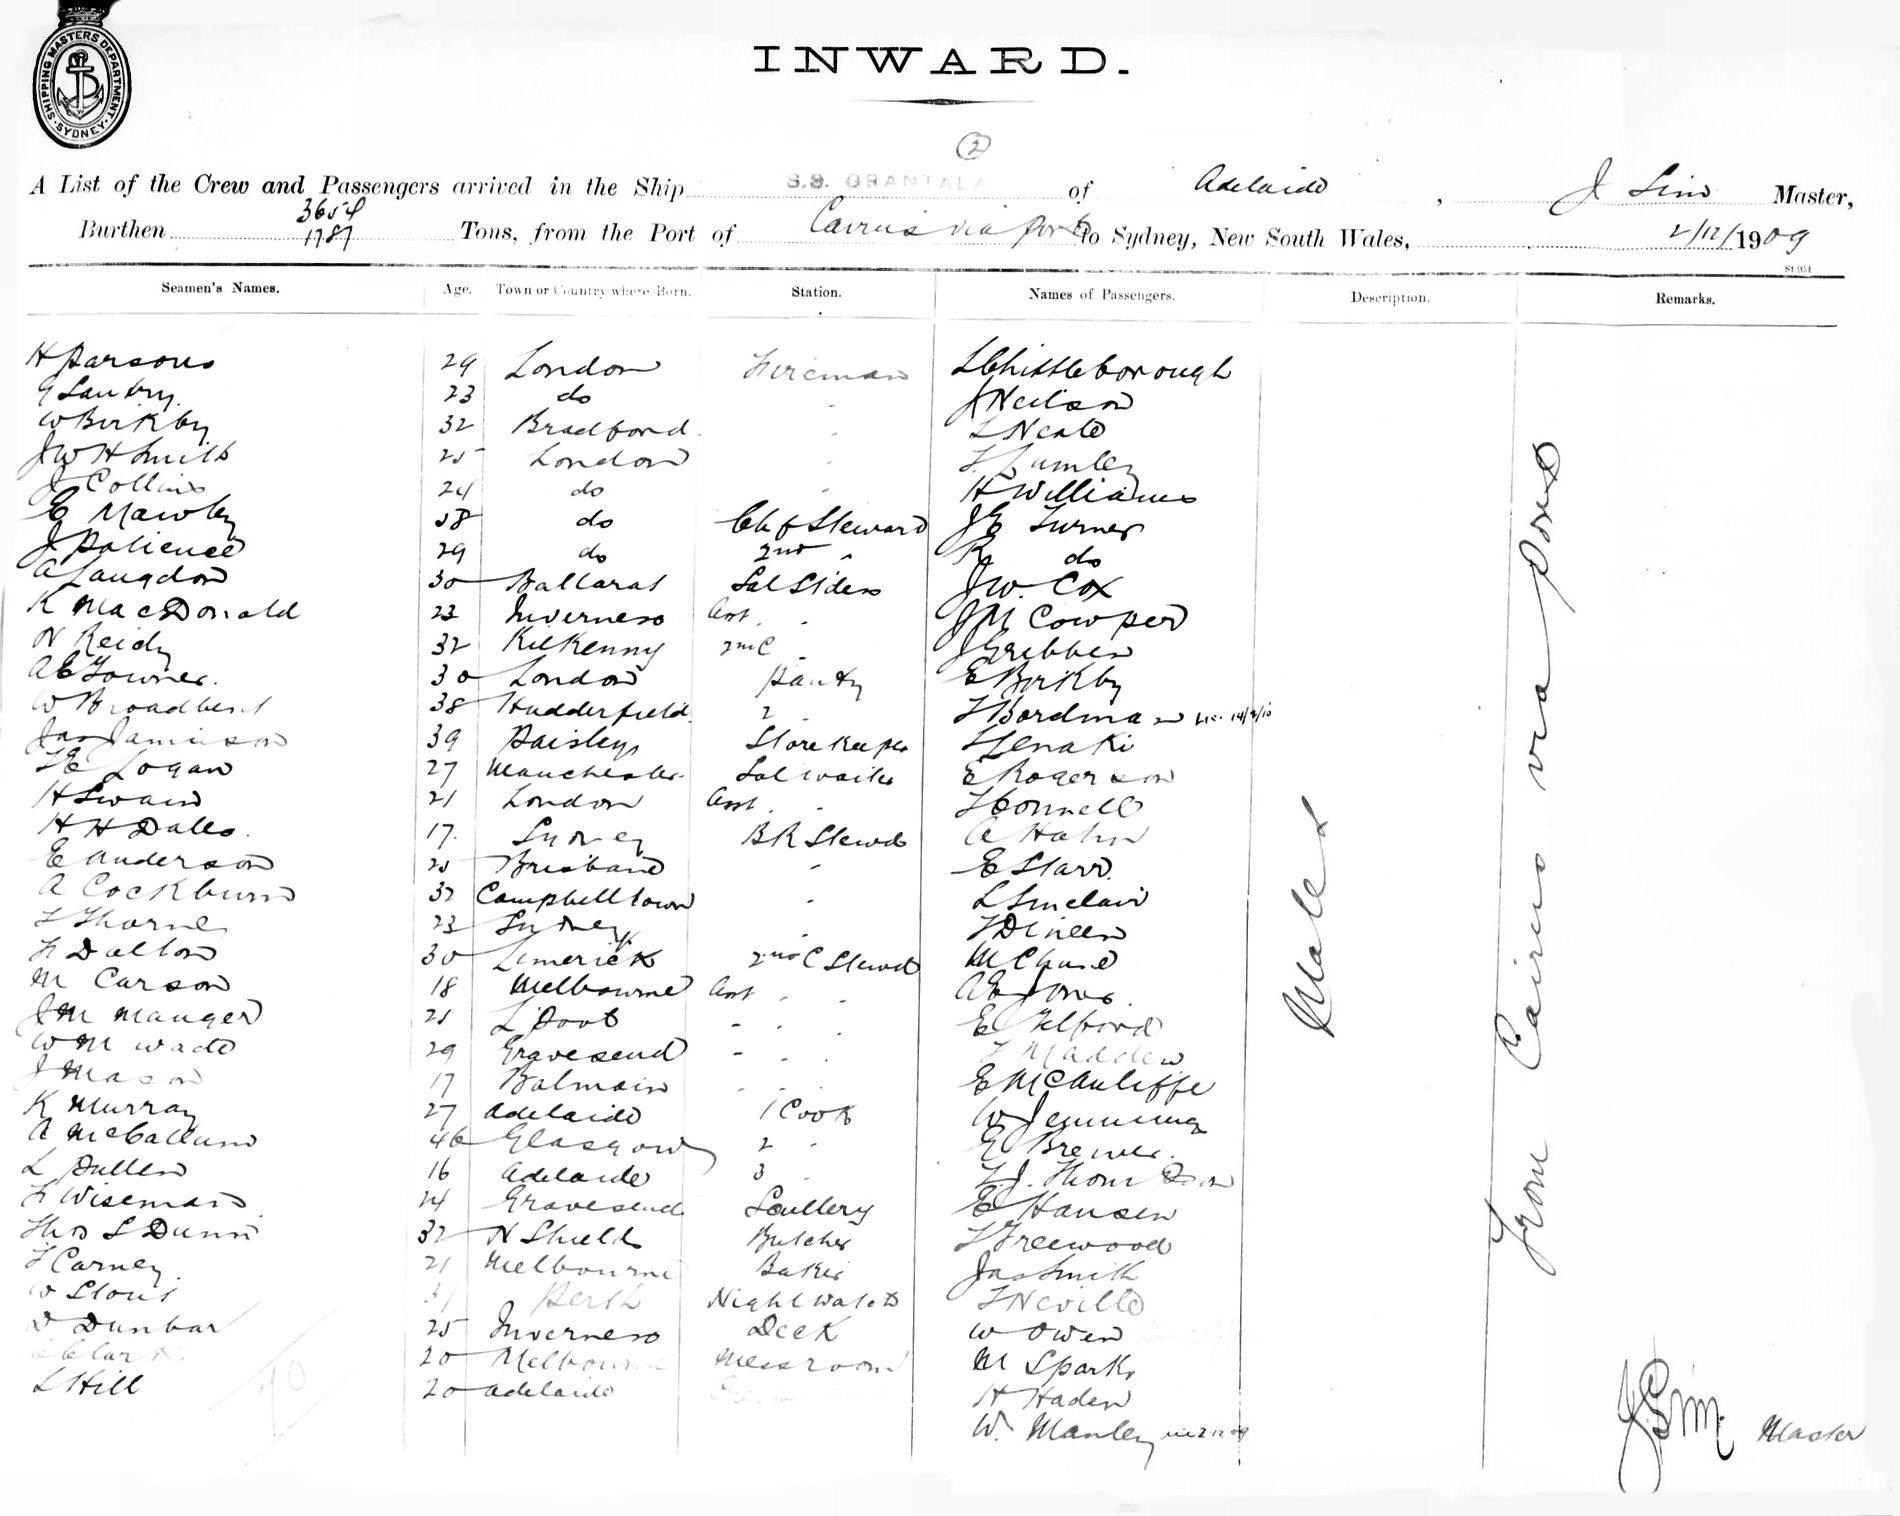 SHIPPING MASTERS DEPARTMENT. SYDNEY.
INWARD.
2
A List of the Crew and Passengers arrived in the Ship S.S. GRANTALA of Adelaide, J Sim Master,
3654
Burthen 1787 Tons, from the Port of Cairns via Ports to Sydney, New South Wales, 2/12/1909
St 951
Seamen's Names. Age. Town or Country where Born. Station. Names of Passengers. Description. Remarks.
H Parsons 29 London Fireman L Chittleborough
23 do " J Neilson
W Birkby 32 Bradford " L Neale
J W H Smith 25 London " F. Lumley
J Collins 24 do " H Williams
E Mawby 38 do Chf Steward J E Turner
J Patience 29 do 2nd " R do
A Langdon 30 Ballarat Sal Stdess J W. Cox
K MacDonald 23 Inverness Asst " J M Cowper
N Reidy 32 Kilkenny 2nd C " J Gribben
A E Towner. 30 London Pantry E Birkby
W Broadbent 38 Hudderfield 2 " F Bordman
Jas Jamieson 39 Paisley Storekeeper
F E Logan 27 Manchester Sal waiter E Rogerson
H Swain 21 London Asst. " F Connell
H H Dales. 17. Sydney B R Stewd A Hahn
E Anderson 25 Brisbane " E Starr.
A Cockburn 32 Campbelltown " L Sinclair
F Thorne 23 Sydney " F Dineen
F Dalton 30 Limerick 2nd C Stewd
M Carson 18 Melbourne Asst " " A E Jones.
J M Manger 21 L Pool " " " E Telford
W M Wade 29 Gravesend " " " F Madden
J Mason 17 Balmain " " " E McAuliffe
K Murray 27 Adelaide 1 Cook W Jennings
A McCallum 46 Glasgow 2 " G Brewer.
L Pullen 16 Adelaide 3 " F. J. Thompson
F Wiseman 24 Gravesend Scullery E Hansen
Thos S Dunn 32 N Shields Butcher F Freewood
F Carney 21 Melbourne Baker Jas Smith
W Stout 31 Perth Nightwatch F Neville
D Dunbar 25 Inverness Deck W Owen
Clark 20 Melbourne Messroom M Sparks
L Hill 20 Adelaide H Haden
W. Manley
Males
From Cairns via Ports
J Sim. Master